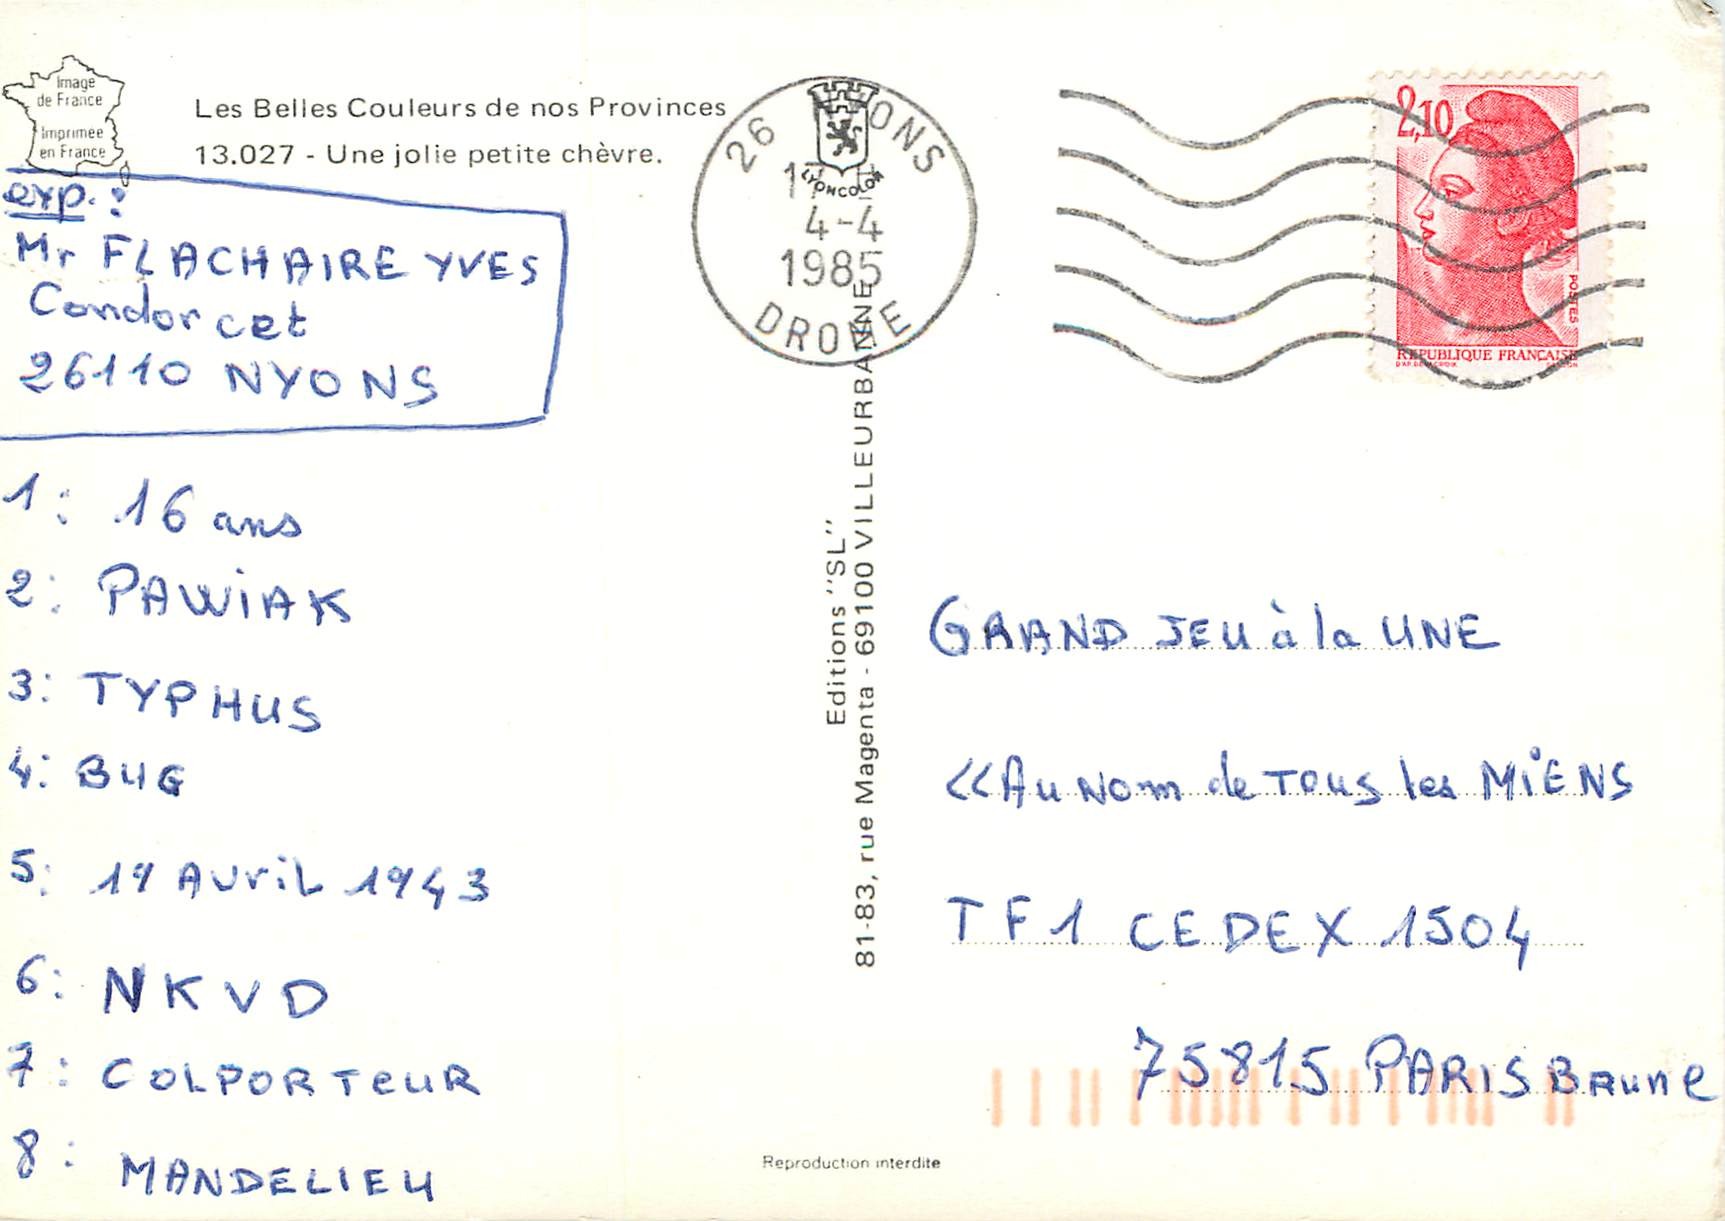 Image
de France
Imprimée
en France
Les Belles Couleurs de nos Provinces
13.027 - Une jolie petite chèvre.
exp. :
Mr FLACHAIRE YVES
Condorcet
26110 NYONS
1: 16 ans
2: PAWiAK
3: TYPHUS
4: BUG
5: 19 AvriL 1943
6: NKVD
7: COLPORTeUR
8: MANDELIEU
26 YONS
LYONCOLOR
4-4
1985
DROME
Editions "SL"
81-83, rue Magenta - 69100 VILLEURBANNE
Reproduction interdite
2,10
POSTES
REPUBLIQUE FRANCAISE
GRAND JEU à la UNE
<<Au Nom de TOUS les MiENS
TF1 CEDEX 1504
75815 PARIS BRUNE